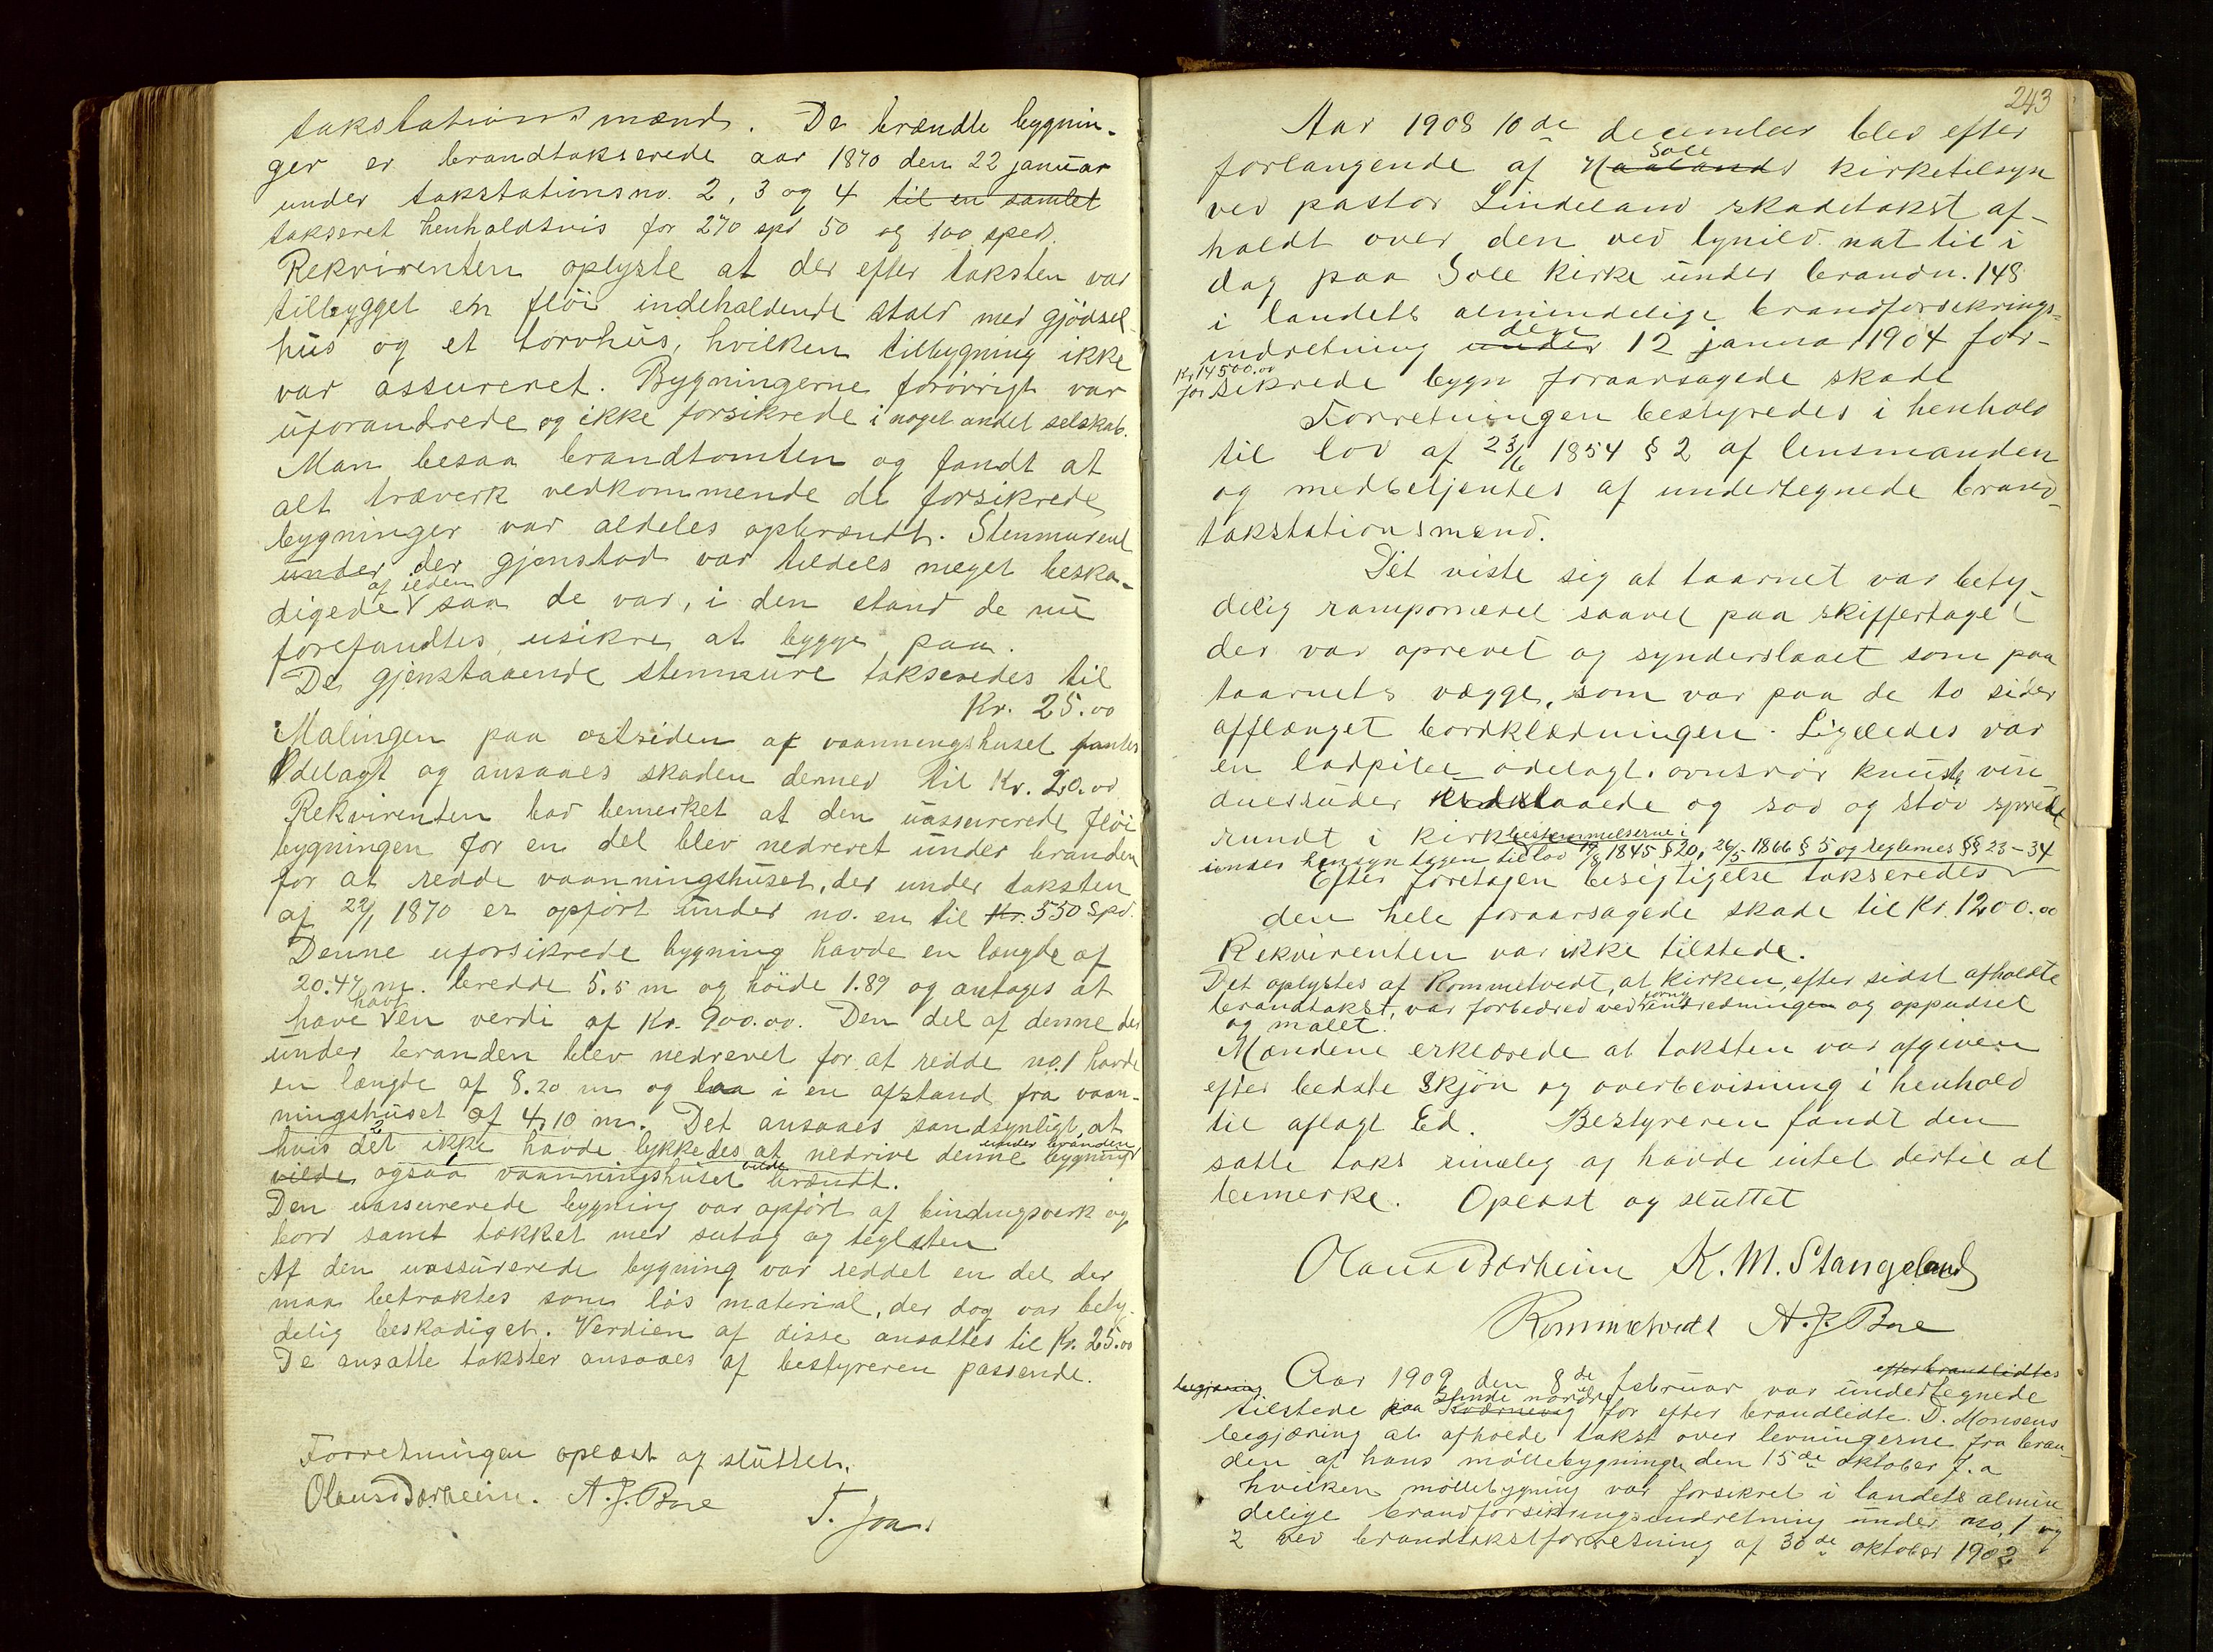 takstationsmænd. De brændte bygnin-
ger er brandtakserede aar 1870 den 22 januar
under takstationsno. 2, 3 og 4 til en samlet
takseret henholdsvis for 270 spd 50 og 100 sped.
Rekvirenten oplyste at der efter taksten var
tilbygget en fløi indeholdende stald med gjødsel-
hus og et torvhus, hvilken tilbygning ikke
var assureret. Bygningerne forøvrigt var
uforandrede og ikke forsikrede i noget andet selskab.
Man besaa brandtomten og fandt at
alt træverk vedkommende de forsikrede
bygninger var aldeles opbrændt. Stenmurene
under der gjenstod var tildels meget beska-
af ilden
digede saa de var, i den stand de nu
forefandtes, usikre at bygge paa.
De gjenstaaende stenmure takseredes til
Kr. 25.00
Malingen paa østsiden af vaanningshuset fantes
ødelagt og ansaaes skaden derved til Kr. 20.00
Rekvirenten har bemerket at den uassurerede fløi
bygningen for en del blev nedrevet under branden
for at redde vaanningshuset, der under taksten
af 22/1 1870 er opført under no. en til Kr. 550 Spd.
Denne uforsikrede bygning havde en længde af
20.47 m. bredde 5.5 m og høide 1.89 og antages at
havt
have en verdi af Kr. 900.00. Den del af denne der
under branden blev nedrevet for at redde no. 1 havde
en længde af 8.20 m og laa i en afstand fra vaan-
ningshuset af 4,10 m. Det ansaaes sandsynligt, at
under branden
hvis det ikke havde lykkedes at nedrive denne bygning
vilde
vilde ogsaa vaanningshuset brændt.
Den uassurerede bygning var opført af bindingsverk og
bord samt tækket med sutag og teglsten
Af den uassurerede bygning var reddet en del der
maa betraktes som løs material, der dog var bety-
delig beskadiget. Verdien af disse ansattes til Kr. 25.00
De ansatte takster ansaaes af bestyreren passende.
Forretningen oplæst og sluttet.
Olaus Børheim. A. J. Boe
T. Joa.
243
Aar 1908 10de december blev efter
Sole
forlangende af Haalands kirketilsyn
ved pastor Lindeland skadetakst af-
holdt over den ved lynild nat til i
dag paa Sole Kirke under brandn. 148
i landets almindelige brandforsikrings-
den
indretning under 12 januar 1904 for-
Kr. 14500.00
for sikrede bygn foraarsagede skade
Forretningen bestyredes i henhold
til lov af 23/6 1854 § 2 af lensmanden
og medbetjentes af undertegnede brand-
takstationsmænd.
Det viste sig at taarnet var bety-
delig ramponeret saavel paa skiffertaget
der var oprevet og synderslaaet som paa
taarnets vægge, som var paa de to sider
afflænget bordklædningen. Ligeledes var
en ladpibe ødelagt, ovnsrør knust, vin
duesruder slaaede og sod og støv spredt
rundt i kirk
bestemmelserne i
under hensyn tagen til lov 19/8 1845 § 20, 26/5 1866 § 5 og reglemes §§ 23-34
Efter foretagen besigtigelse takseredes
den hele foraarsagede skade til Kr. 1200.00
Rekvirenten var ikke tilstede.
Det oplystes af Rommetvedt, at kirken, efter sidst afholdte
brandtakst, var forbedred ved indredningen og oppudset
og malet.
Mændene erklærede at taksten var afgiven
efter bedste skjøn og overbevisning i henhold
til aflagt Ed. Bestyreren fandt den
satte takst rimelig og havde intet dertil at
bemerke. Oplæst og sluttet
Olaus Børheim K. M. Stangeland
Rommetvedt A. J. Boe
efter brandlidtes
Aar 1909 den 8de februar var undertegnede
begjæring
Sunde nordre
tilstede paa Kværnevig for efter brandlidte D. Monsens
begjæring at afholde takst over levningerne fra bran-
den af hans møllebygninger den 15de oktober f. a
hvilken møllebygning var forsikret i landets almin
delige brandforsikringsindretning under no. 1 og
2 ved brandtakstforretning af 30de oktober 1902